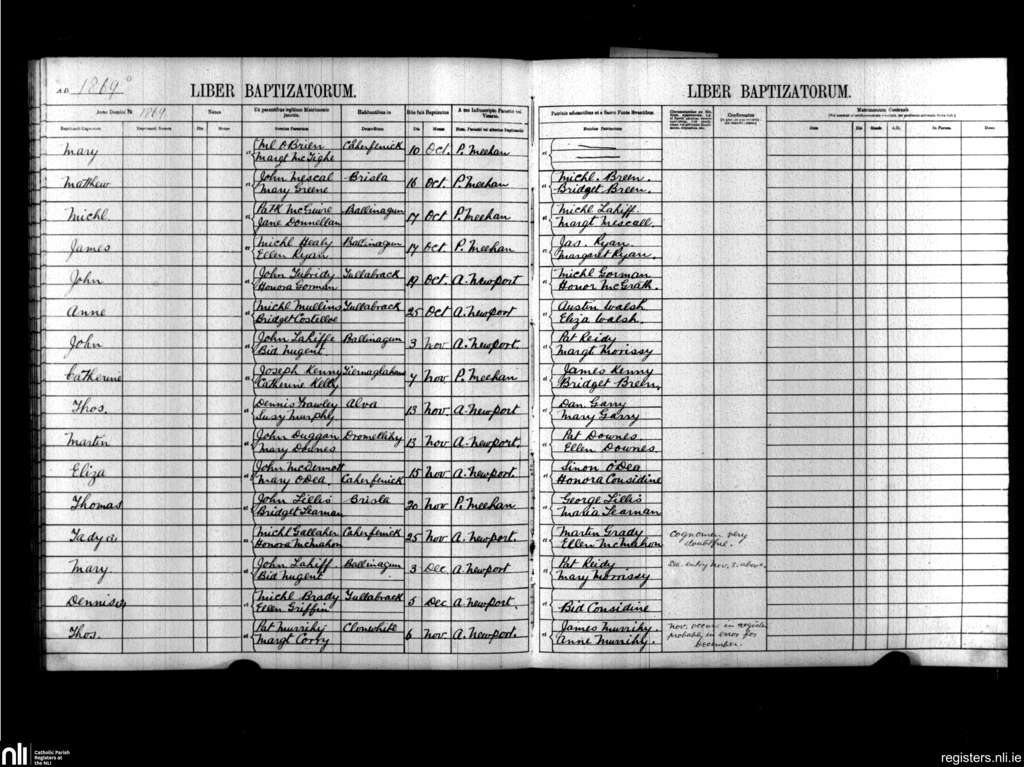 A.D. 1869
LIBER BAPTIZATORUM.
LIBER BAPTIZATORUM.
Anno Domini 1869
Natus
Ex parentibus legitimo Matrimonio junctis
Habitantibus in
Rite fuit Baptizatus
A me Infrascripto Parochi vel Vicario.
Patrinis adstantibus et a Sacro Fonte levantibus.
Confirmatus
Matrimonium Contraxit
Die
Mense
Nomina Parentum
Die
Mense
Nomina Patrinorum
Die
Mensis
A.D.
Mary
Ml O'Brien
Caherfenick
10 Oct. P. Meehan
Margt McTighe
Matthew
John Mescal
Brisla
16 Oct. P. Meehan
Michl. Breen.
Mary Greene
Bridget Breen.
Michl
Patk McGuire
Ballinagun
17 Oct P. Meehan
Michl Lahiff.
Jane Donnellan
Margt Mescall.
James
Michl Healy
Ballinagun
17 Oct P. Meehan
Jas. Ryan.
Ellen Ryan
Margaret Ryan.
John
John Tubridy
Tullabrack
19 Oct. A. Newport
Michl Gorman
Honora Gorman
Honor McGrath.
Anne
Michl Mullins
Tullabrack
25 Oct A. Newport
Austin Walsh
Bridget Costelloe
Eliza Walsh.
John
John Lahiffe
Ballinagun
3 Nov A. Newport.
Pat Reidy
Bid Nugent
Margt Morissy
Catherine
Joseph Kenny
Tiernaglahane
7 Nov P. Meehan
James Kenny
Catherine Kelly
Bridget Breen.
Thos.
Dennis Frawley
Alva
13 Nov. A. Newport
Dan Garry
Susy Murphy
Mary Garry
Martin
John Duggan
Drometlihy
13 Nov A. Newport.
Pat Downes
Mary Downes
Ellen Downes.
Eliza
John McDermott
15 Nov A. Newport.
Sinon O'Dea
Mary O'Dea.
Caherfenick
Honora Considine
Thomas
John Lillis
Brisla
20 Nov P. Meehan
George Lillis
Bridget Seaman
Maria Seaman
Tady
Michl Gallaher
Caherfenick
25 Nov A. Newport.
Martin Grady
Cognomen very
Honora McMahon
Ellen McMahon
doubtful.
Mary.
John Lahiff
Ballinagun
3 Dec A. Newport
Pat Reidy
See entry Nov. 3. above.
Bid Nugent
Mary Morrissy
Dennis
Michl Brady
Tullabrack
5 Dec A. Newport.
Ellen Griffin
Bid Considine
Thos.
Pat Murrihy
Clonwhite
6 Nov. A. Newport.
James Murrihy
Nov. occurs in register
Margt Corry
Anne Murrihy.
probably in error for
December.
nli
Catholic Parish
Registers at
the NLI
registers.nli.ie